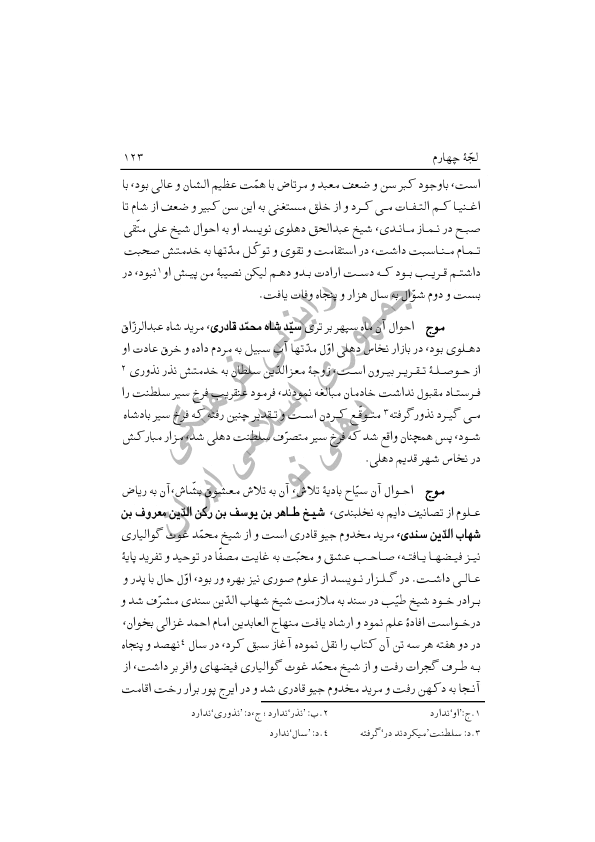 لجّهٔ چهارم ۱۲۳
است، باوجود کبر سن و ضعف معبد و مرتاض با همّت عظیم الشان و عالی بود، با
اغنیا کم التفات می کرد و از خلق مستغنی به این سن کبیر و ضعف از شام تا
صبح در نماز ماندی، شیخ عبدالحق دهلوی نویسد او به احوال شیخ علی متّقی
تمام مناسبت داشت، در استقامت و تقوی و توکّل مدّتها به خدمتش صحبت
داشتم قریب بود که دست ارادت بدو دهم لیکن نصیبهٔ من پیش او۱ نبود، در
بست و دوم شوّال به سال هزار و پنجاه وفات یافت.
موج احوال آن ماه سپهر بر تری سیّد شاه محمّد قادری، مرید شاه عبدالرزّاق
دهلوی بود، در بازار نخاس دهلی اوّل مدّتها آب سبیل به مردم داده و خرق عادت او
از حوصلهٔ تقریر بیرون است، زوجهٔ معزالدّین سلطان به خدمتش نذر نذوری ۲
فرستاد مقبول نداشت خادمان مبالغه نمودند، فرمود عنقریب فرخ سیر سلطنت را
می گیرد نذور گرفته۳ متوقع کردن است و تقدیر چنین رفته که فرخ سیر بادشاه
شود، پس همچنان واقع شد که فرخ سیر متصرّف سلطنت دهلی شد، مزار مبارکش
در نخاس شهر قدیم دهلی.
موج احوال آن سیّاح بادیهٔ تلاش، آن به تلاش معشوق بشّاش، آن به ریاض
علوم از تصانیف دایم به نخلبندی، شیخ طاهر بن یوسف بن رکن الدّین معروف بن
شهاب الدّین سندی، مرید مخدوم جیو قادری است و از شیخ محمّد غوث گوالیاری
نیز فیضها یافته، صاحب عشق و محبّت به غایت مصفّا در توحید و تفرید پایهٔ
عالی داشت. در گلزار نویسد از علوم صوری نیز بهره ور بود، اوّل حال با پدر و
برادر خود شیخ طیّب در سند به ملازمت شیخ شهاب الدّین سندی مشرّف شد و
درخواست افادهٔ علم نمود و ارشاد یافت منهاج العابدین امام احمد غزالی بخوان،
در دو هفته هر سه تن آن کتاب را نقل نموده آغاز سبق کرد، در سال ۴ نهصد و پنجاه
به طرف گجرات رفت و از شیخ محمّد غوث گوالیاری فیضهای وافر بر داشت، از
آنجا به دکهن رفت و مرید مخدوم جیو قادری شد و در ایرج پور برار رخت اقامت
۱. ج: 'او' ندارد ۲. ب: 'نذر' ندارد ؛ ج، د: 'نذوری' ندارد
۳. د: سلطنت 'میکردند در' گرفته ۴. د: 'سال' ندارد
رایزنی فرهنگی
جمهوری اسلامی ایران
دهلی نو